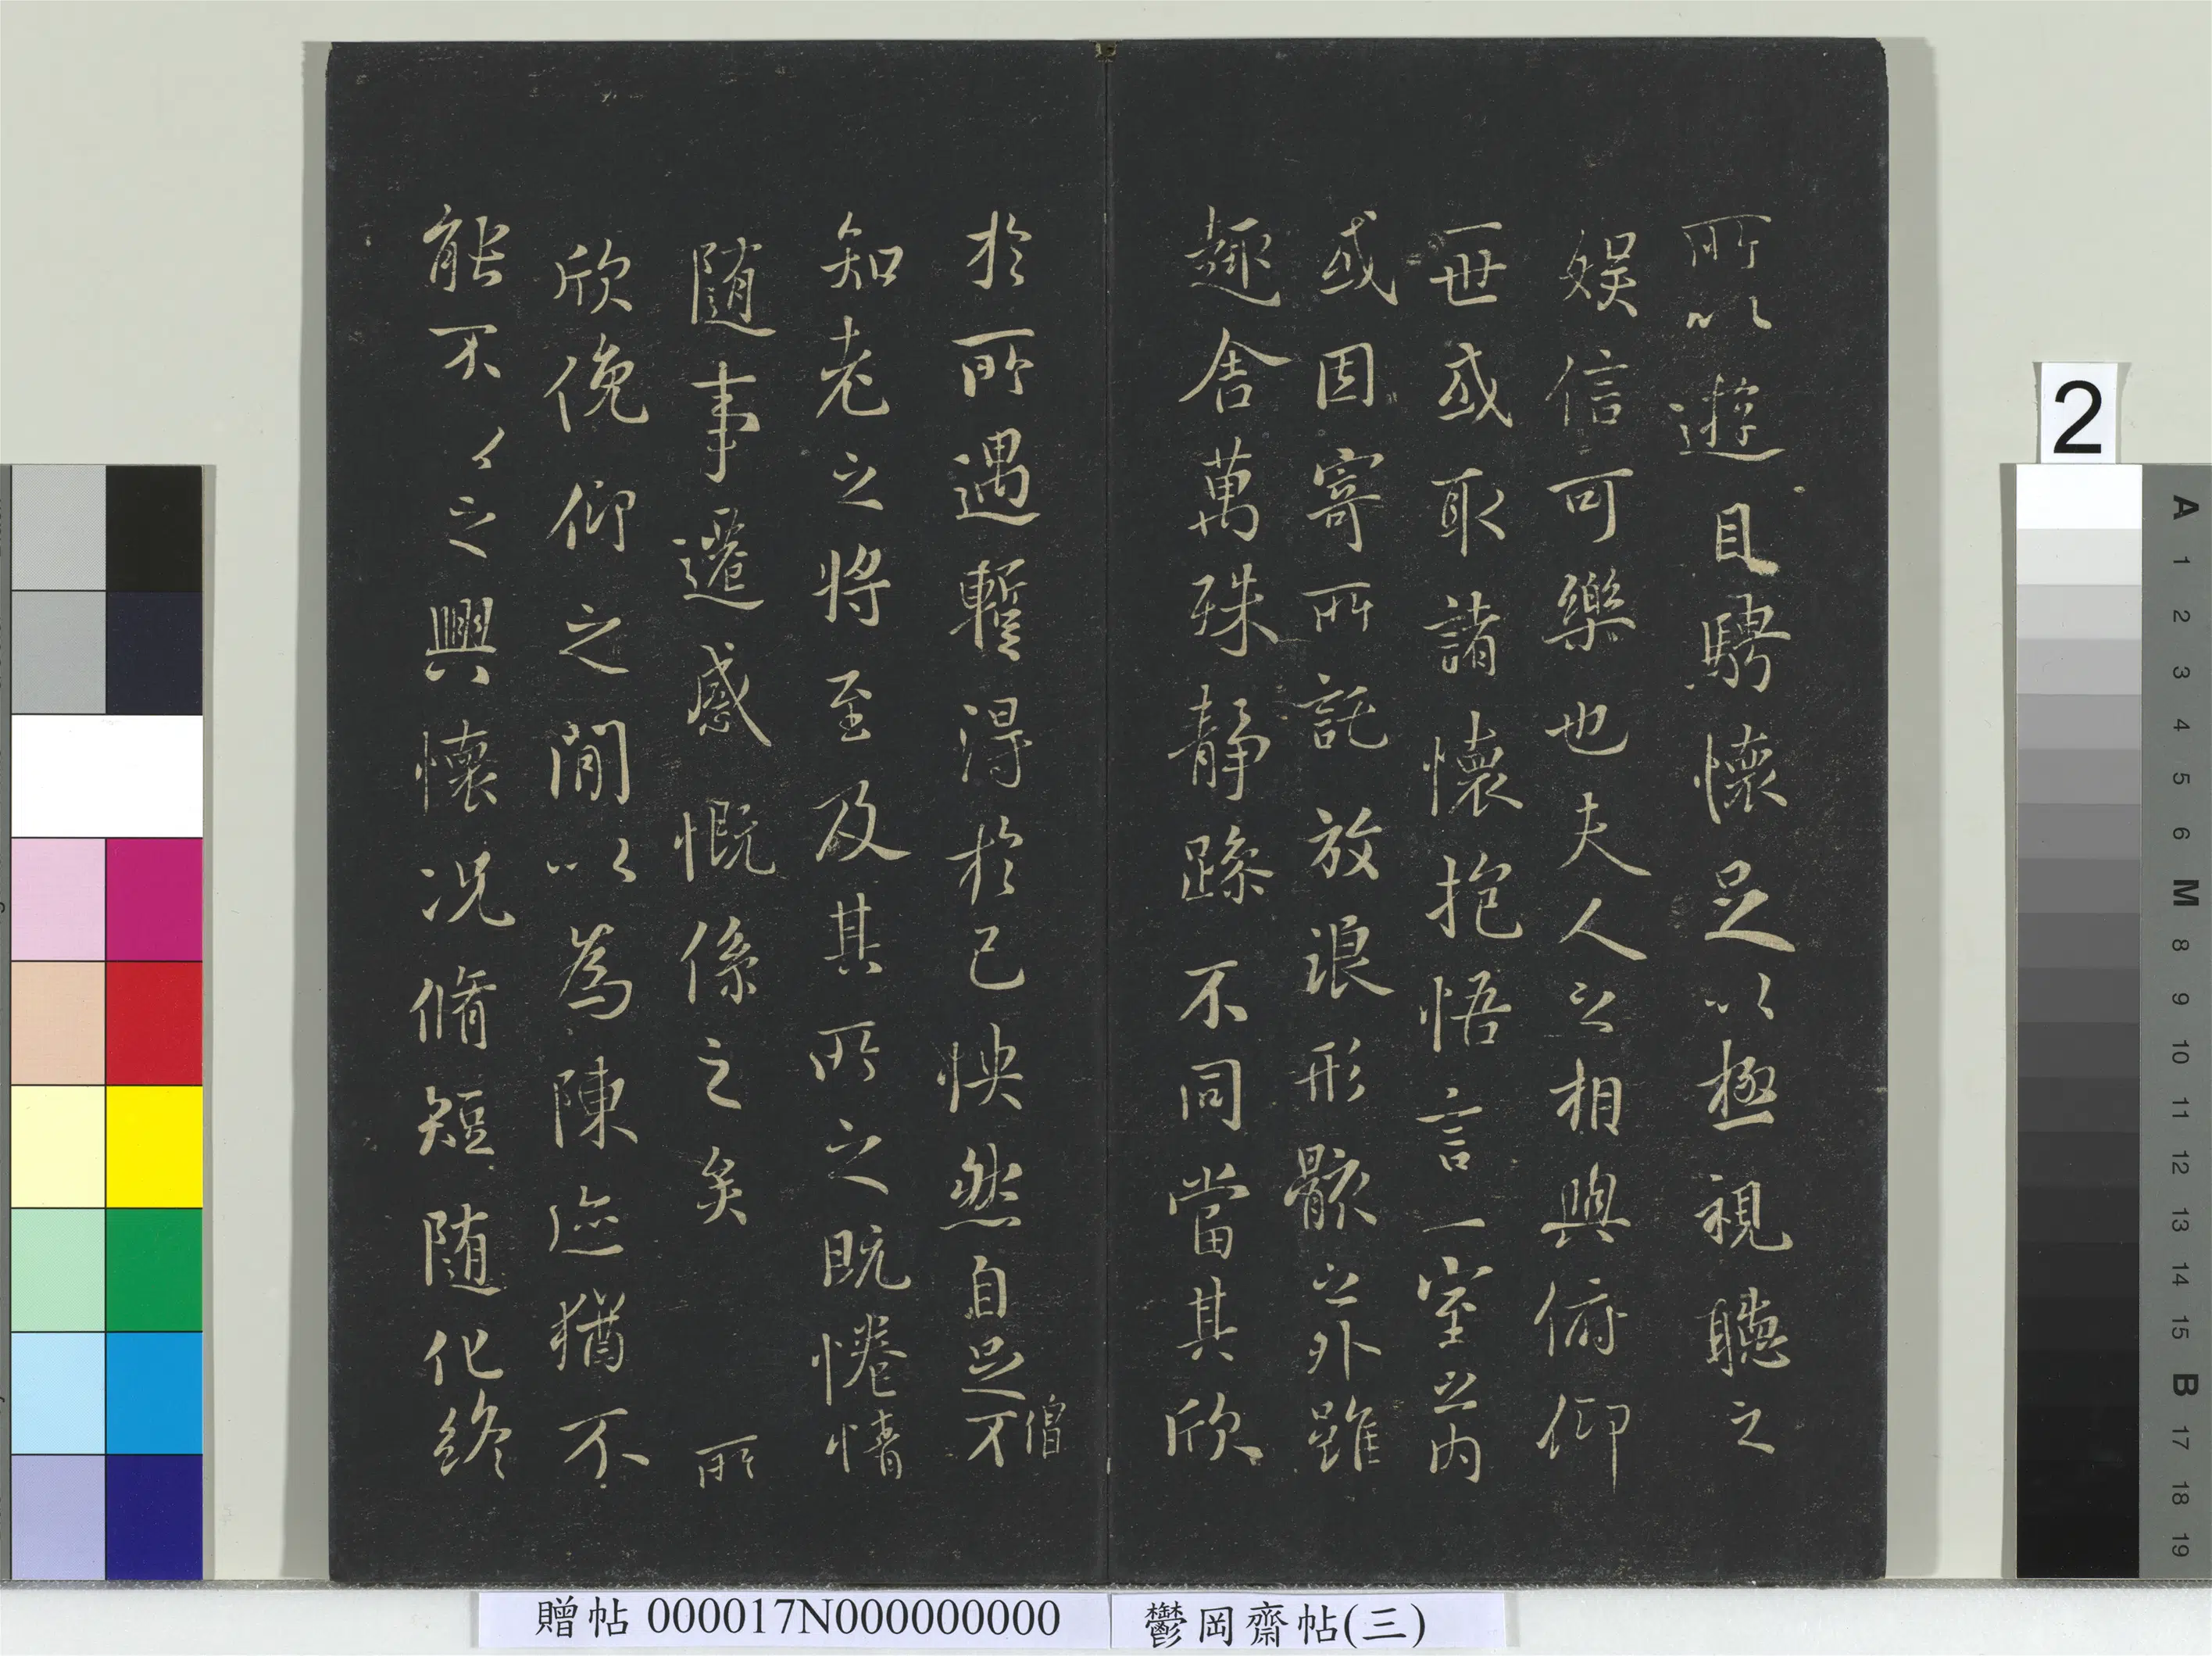 所以遊目騁懷足以極視聽之
娛信可樂也夫人之相與俯仰
一世或取諸懷抱悟言一室之內
或因寄所託放浪形骸之外雖
趣舍萬殊靜躁不同當其欣
於所遇蹔得於己怏然自足不
僧
知老之將至及其所之既惓情
隨事遷感慨係之矣 所
欣俛仰之間以為陳迹猶不
能不以之興懷況脩短隨化終
2
A 1 2 3 4 5 6 M 8 9 10 11 12 13 14 15 B 17 18 19
贈帖 000017N000000000
鬱岡齋帖(三)